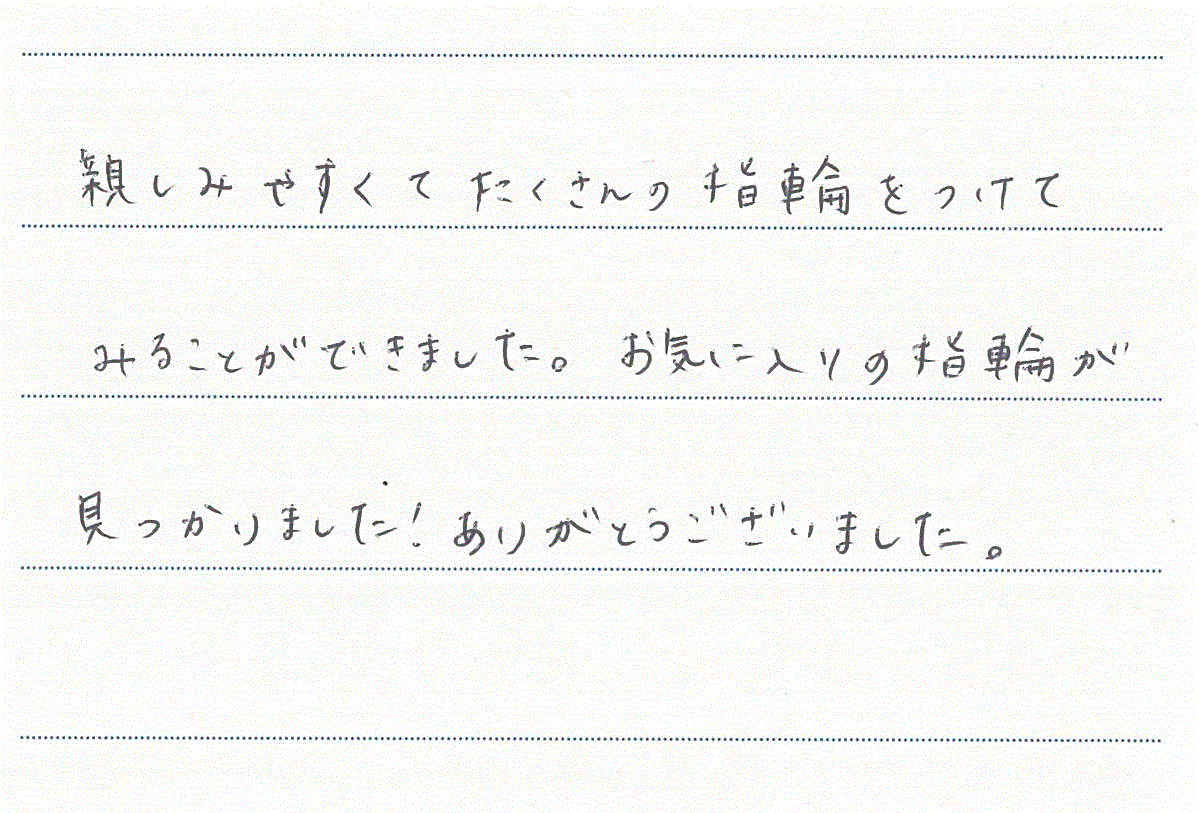 親しみやすくてたくさんの指輪をつけて
みることができました。お気に入りの指輪が
見つかりました!ありがとうございました。